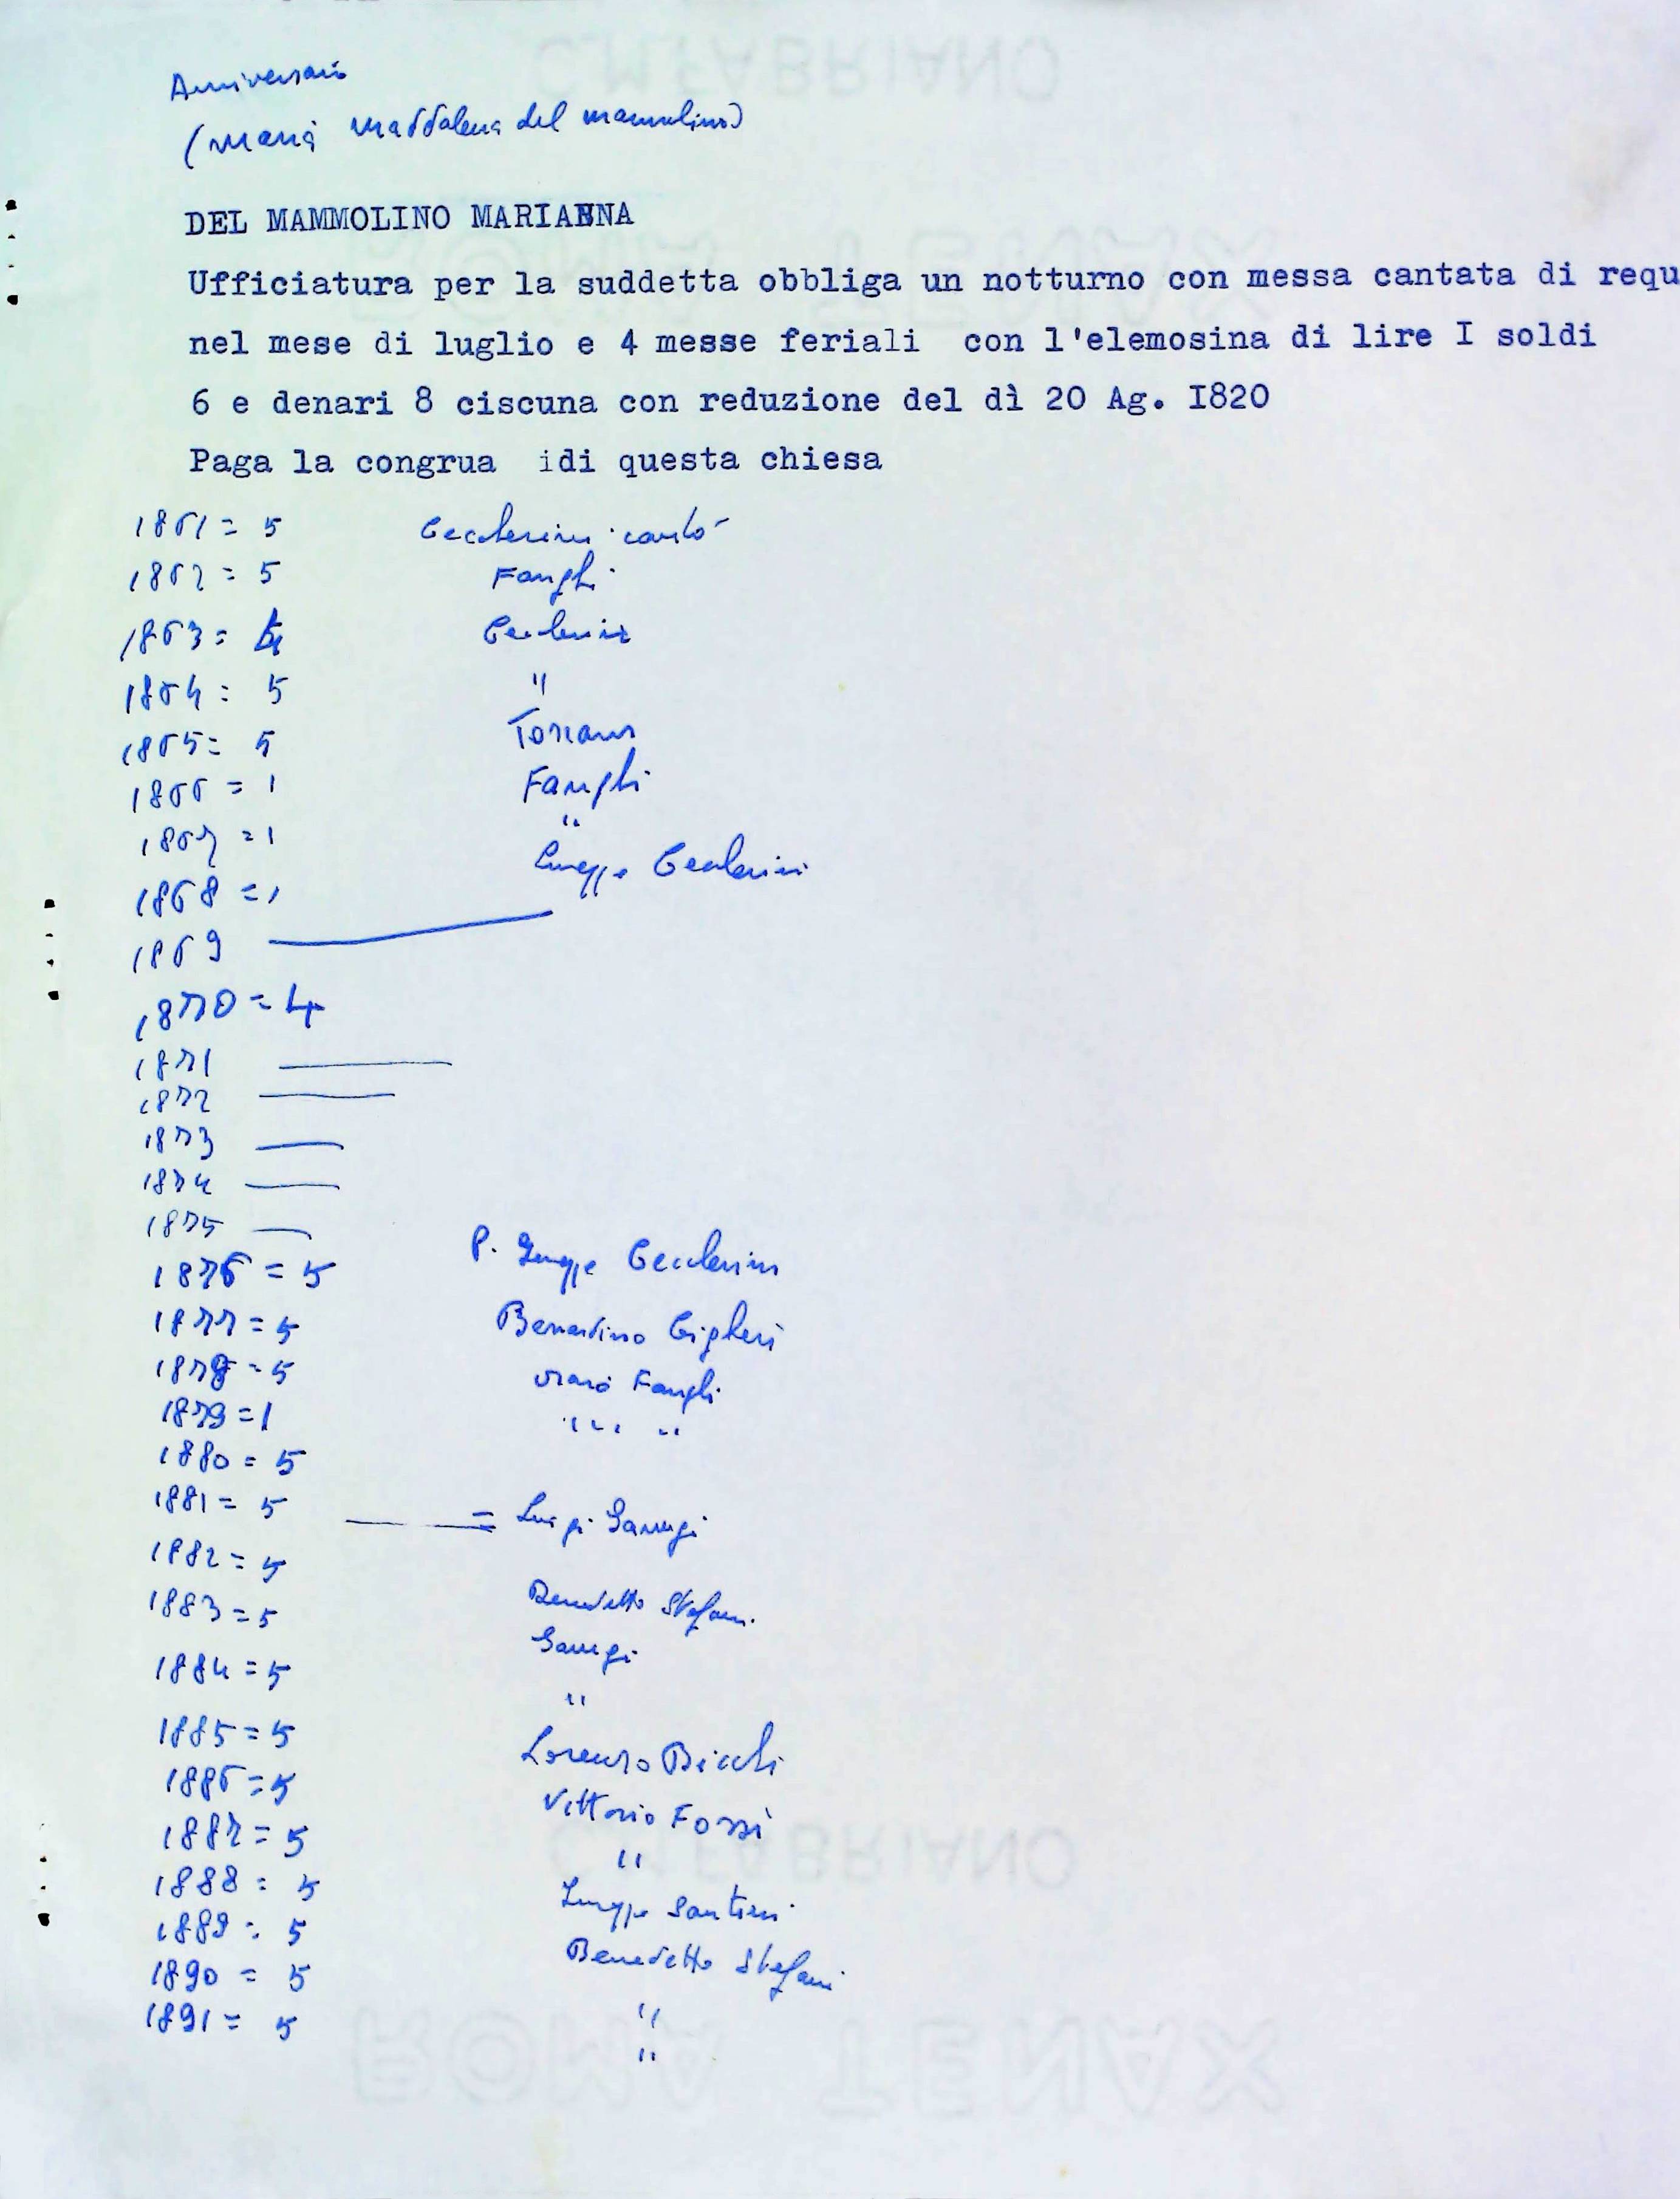 Anniversario
(Maria Maddalena del Mammolino)
DEL MAMMOLINO MARIANNA
Ufficiatura per la suddetta obbliga un notturno con messa cantata di requ
nel mese di luglio e 4 messe feriali con l'elemosina di lire I soldi
6 e denari 8 ciscuna con reduzione del dì 20 Ag. I820
Paga la congrua idi questa chiesa
1861 = 5 Ceccherini
1862 = 5 Fanghi
1863 = Ceccherini
1864 = 5 "
1865 = 5 Toscano
1866 = 1 Fanghi
1867 = 1 "
1868 = 1 Giuseppe Ceccherini
1869
1870 = 4
1871
1872
1873
1874
1875
1876 = 5 P. Giuseppe Ceccherini
1877 = 5 Bernardino Cigheri
1878 = 5 Fanghi
1879 = 1 " "
1880 = 5
1881 = 5 = Luigi
1882 = 5
1883 = 5 Benedetto Stefani
1884 = 5
"
1885 = 5 Lorenzo Bicchi
1886 = 5 Vittorio Fossi
1887 = 5 "
1888 = 5 Giuseppe Santini
1889 = 5 Benedetto Stefani
1890 = 5 "
1891 = 5 "
C.M.FABRIANO
ROMA TENAX
C.M.FABRIANO
ROMA TENAX